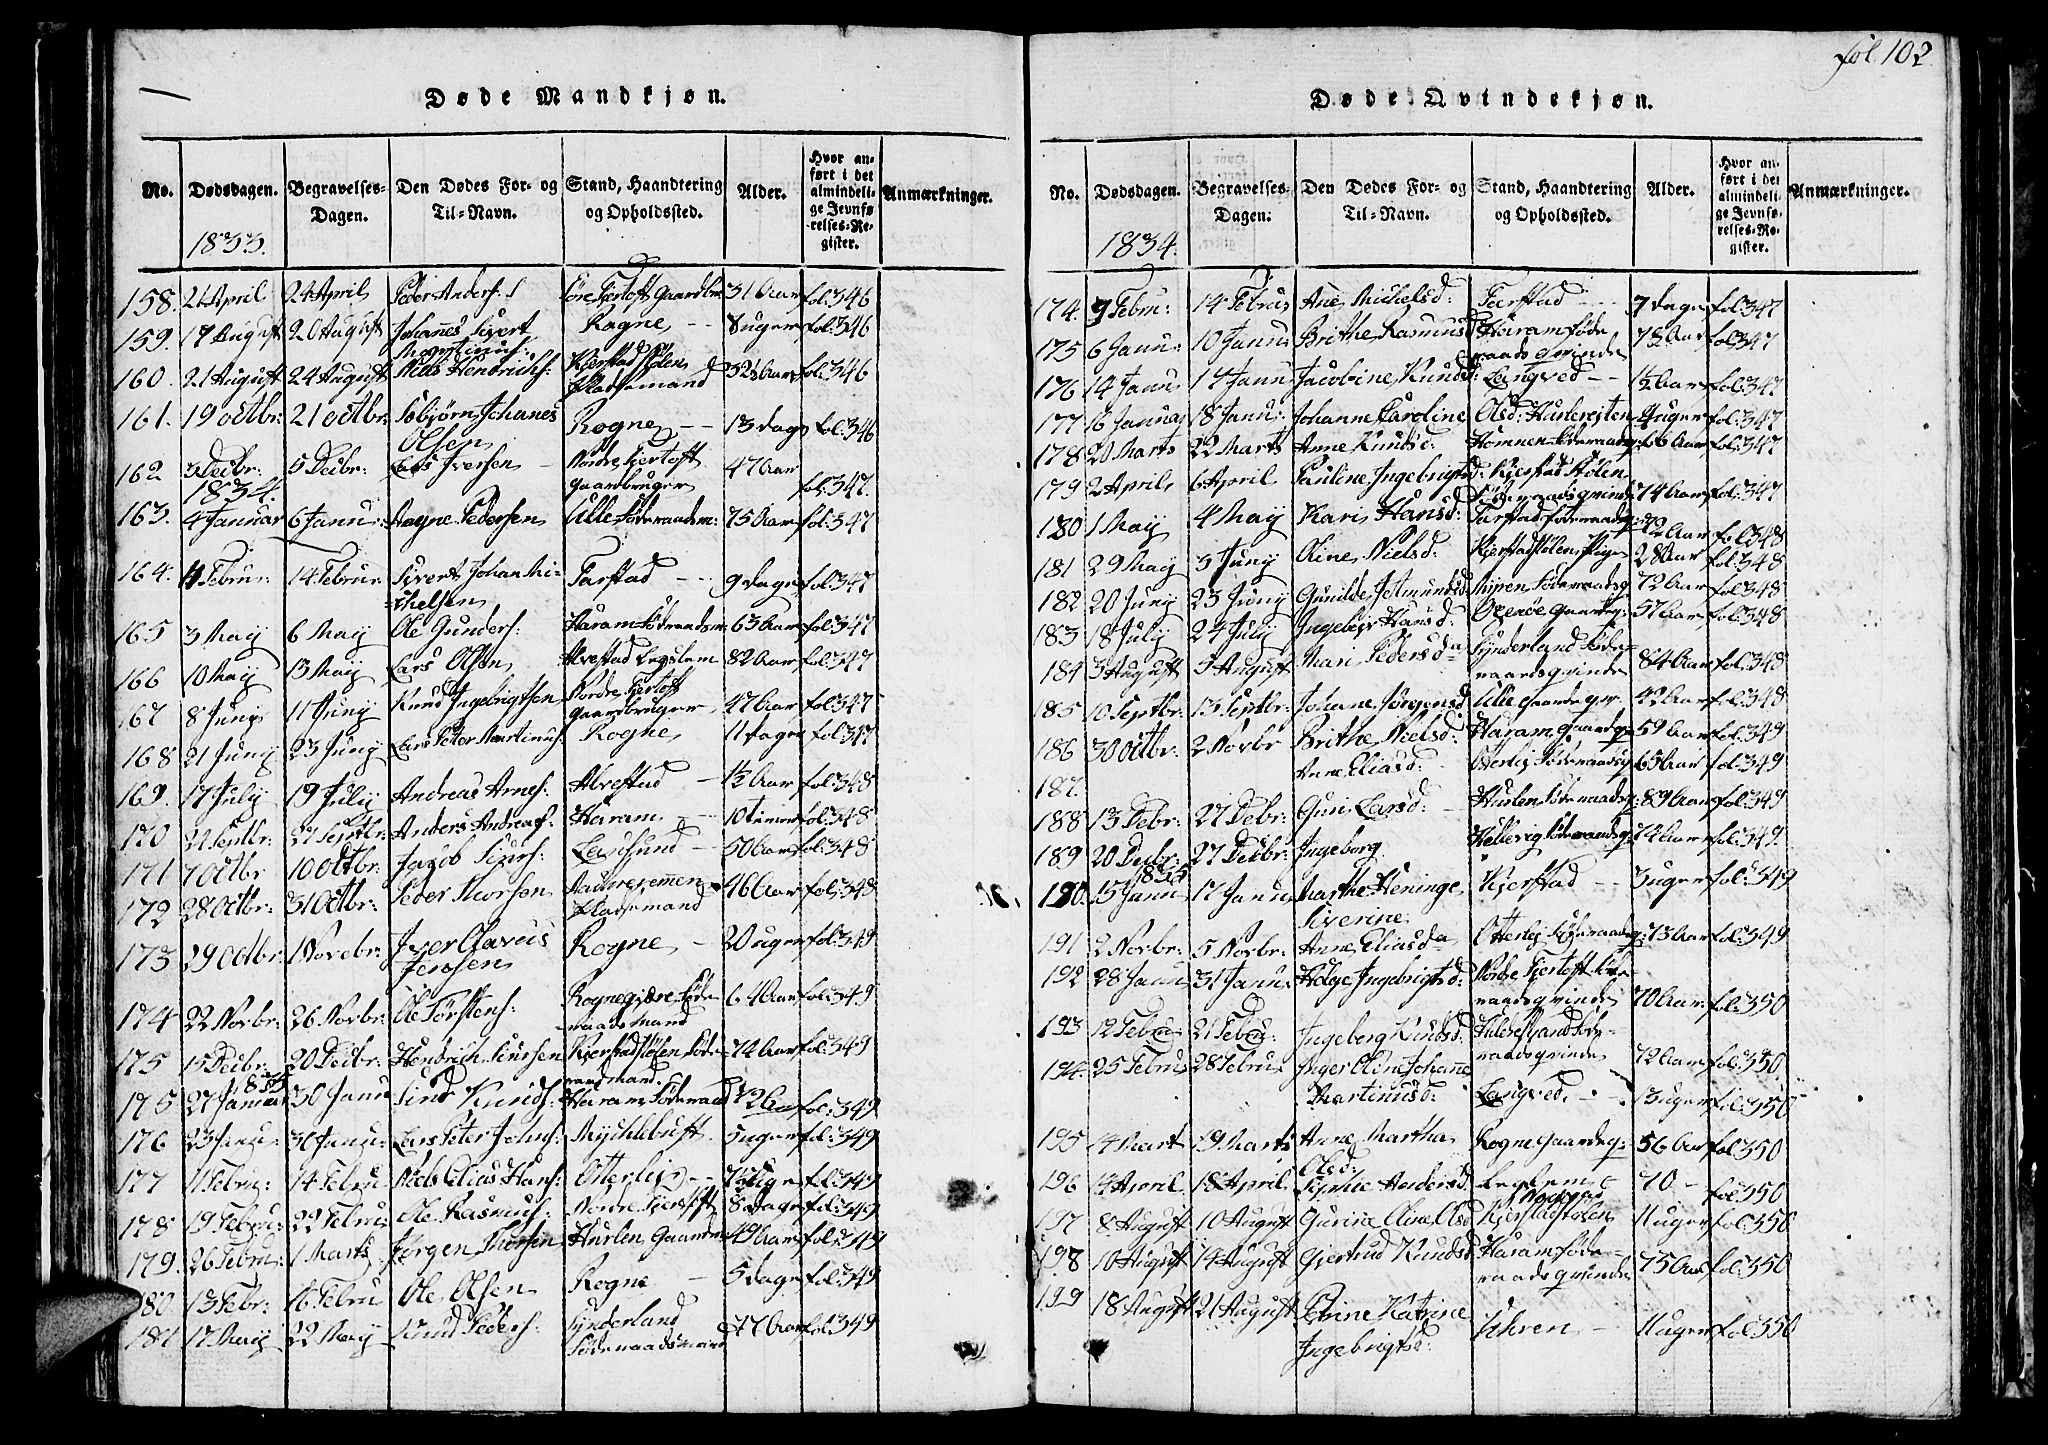 fol. 102
Døde Mandkjøn.
No. Dødsdagen. Begravelses-Dagen. Den Dødes For- og Til-Navn. Stand, Haandtering og Opholdssted. Alder. Hvor anført i det almindelige Jevnførelses-Register. Anmærkninger.
1833.
158. 21 April 24 April Peder Anders: Søre Fjertoft Gaardbr 31 Aar fol: 346
159. 17 August 20 August Johanes Sivert Rogne -- 8 uger fol: 346
Martinus:
160. 21 August 24 August Nils Hendrichs: Kjerstadstølen 32½ Aar fol: 346
Pladsemand
161. 19 octbr: 21 octbr: Esbjørn Johanes Rogne -- 13 dage fol: 346
Olsen
162 3 Decbr: 5 Decbr: Lars Iversen - Nordre Fjertoft 47 Aar fol: 347.
Gaardbruger
1834.
163. 4 Januar 6 Janu: Aagne Pedersen Ulle Føderaadsm: 75 Aar fol: 347
164. 11 Februr: 14 Februr Sivert Johan Mi- Farstad -- 9 dage fol: 347
=chelsen
165 3 May 6 May Ole Gunders: Haram Føderaadsm: 63 Aar fol: 347
166 10 May 13 May Lars Olsen Alvestad Legslem 82 Aar fol: 347
167 8 Juny 11 Juny Knud Ingebrigtsen Nordre Fjertoft 47 Aar fol: 347
Gaardbruger
168 21 Juny 23 Juny Lars Peter Martinus: Rogne 11 dage fol: 347
169. 17 July 19 July Andreas Arnes: Alvestad - 1½ Aar fol: 348
170 22 Septbr: 27 Septbr: Anders Andreas: Haram -- 10 timer fol: 348
171 7 Octbr 10 Octbr: Jacob Siurs: - 50 Aar fol: 348
172 28 Octbr: 31 Octbr: Peder Thorsen 46 Aar fol: 348
Pladsemand
173 29 Octbr: 1 Novebr: Iver Olavus Rogne - 20 uger fol: 349
Jensen
174 22 Novbr: 26 Novbr: Ole Torstens: Rognegjære Føde- 64 Aar fol: 349
raads Mand
175 15 Decbr: 20 Decbr: Hendrich Siursen Kjerstadstølen Føde- 74 Aar fol: 349
raadmand.
1835
175 27 Januar 30 Janu Sind Knuds: Haram Føderaad 72 Aar fol: 349
176 23 Janu: 30 Janu: Lars Peter Johns: Mychlebust 5 uger fol: 349
177 11 Febru: 14 Febru Niels Elias Hans: Otterlei -- fol: 349
178 19 Febru: 22 Febru Ole Rasmus: Nordre Fjertoft 8 dage fol: 349
179. 26 Febru: 1 Marts Jørgen Thorsen Hurlen Gaardm 49 Aar fol: 349
180 13 Febr: 16 Febru Ole Olsen Rogne - 5 dage fol: 349
181 17 May 22 May Knud Peders: Synderland 77 Aar fol: 349
Føderaadsmand
Døde Qvindekjøn.
No. Dødsdagen. Begravelses-Dagen. Den Dødes For- og Til-Navn. Stand, Haandtering og Opholdssted. Alder. Hvor anført i det almindelige Jevnførelses-Register. Anmærkninger.
1834.
174. 9 Febru: 14 Febru: Ane Michelsd: Farstad -- 7 dage fol: 347
175 6 Janu: 10 Janu: Brithe Rasmusd Haram føde 78 Aar fol: 347
raads qvinde
176 14 Janu 17 Janu Jacobine Knuds: Langved -- 1½ Aar fol: 347
177 16 Januar 18 Janu: Johanne Caroline Olsd: Hurlereiten 4 uger fol: 347
178 20 Marts 22 Marts Anne Knudsd: Hamnen Føderaadsq: 66 Aar fol: 347
179 2 April 6 April Pauline Ingebrigtsd: Kjerstad Stølen
Føderaadsqvinde 74 Aar fol: 347
180 1 May 4 May Kari Hansd: Farstad føderaadsq: 72 Aar fol: 348
181 29 May 3 Juny Oline Nielsd: Kjerstadstølen Pige 28 Aar fol: 348
182 20 Juny 23 Juny Gunilde Jetmundsd Nipen Føderaadsq: 72 Aar fol: 348
183 18 July 24 July Ingebor Hansd: Oxenøe Gaardq: 57 Aar fol: 348
184 3 August 5 August Mari Pedersda Synderland Føde-
raadsqvinde 84 Aar fol: 348
185 10 Septbr: 13 Septbr: Johane Jørgensd Ulle Gaardeqv. 42 Aar fol: 348
186 30 Octbr: 2 Novbr Brithe Nielsd: Haram Gaardeqv: 59 Aar fol: 349
187. Anne Eliasd: - Otterlej Føderaadsq: 65 Aar fol: 349
188 13 Debr: 27 Debr: Guri Larsd: - Hurlen Føderaadsq: 89 Aar fol: 349
189 20 Decbr: 27 Decbr: Ingeborg Hellevig Føderaadsq: 72 Aar fol: 349.
1835
190. 15 Janu 17 Janu: Marthe Heninge Kjerstad -- 3 uger fol: 349
Siverine
191 2 Novbr: 5 Novbr: Anne Eliasda Otterlej Føderaadsq: 73 Aar fol: 349
192 28 Janu 31 Janu: Helge Ingebrigtsd: Nordre Fjertoft Føde-
raadsqvinde 70 Aar: fol: 350
193 12 Febru 21 Febru: Ingeborg Knudsd:
raadsqvinde 72 Aar fol: 350
194 25 Febru 28 Febru Inger Oline Johanne
Martinusd: Langved - - 13 uger fol: 350
195 14 Mart 19 Marts Anne Martha Rogne Gaardeq: 56 Aar fol: 350
Olsd:
196 14 April 18 April Sophie Andersd Leglem 70 - fol: 350
197 8 August 10 August Gurine Oline Olsd Kjerstadstolen 11 uger fol: 350
198 10 August 14 August Gjertrud Knudsd Haram føde- 75 Aar fol: 350
raads qvinde
199 18 August 21 August Elvine Katrine 11 uger fol: 350
Ingebrigtsd: